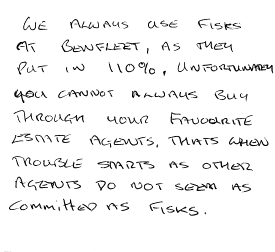 WE ALWAYS USE FISKS
AT BENFLEET, AS THEY
PUT IN 110%, UNFORTUNATELY
YOU CANNOT ALWAYS BUY
THROUGH YOUR FAVOURITE
ESTATE AGENTS, THATS WHEN
TROUBLE STARTS AS OTHER
AGENTS DO NOT SEEM AS
COMMITTED AS FISKS.